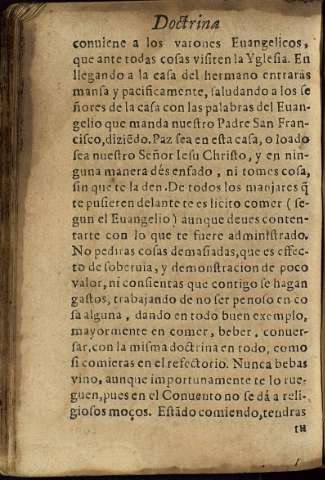 Doctrina
conuiene a los varones Euangelicos,
que ante todas cosas visiten la Yglesia. En
llegando a la casa del hermano entraràs
mansa y pacificamente, saludando a los se
ñores de la casa con las palabras del Euan-
gelio que manda nuestro Padre San Fran-
cisco, diziẽdo. Paz sea en esta casa, o loado
sea nuestro Señor Iesu Christo, y en nin-
guna manera dès enfado, ni tomes cosa,
sin que te la den. De todos los manjares q̃
te pusieren delante te es licito comer (se-
gun el Euangelio) aunque deues conten-
tarte con lo que te fuere administrado.
No pediras cosas demasiadas, que es effec-
to de soberuia, y demonstracion de poco
valor, ni consientas que contigo se hagan
gastos, trabajando de no ser penoso en co
sa alguna, dando en todo buen exemplo,
mayormente en comer, beber, conuer-
sar, con la misma doctrina en todo, como
si comieras en el refectorio. Nunca bebas
vino, aunque importunamente te lo rue-
guen, pues en el Conuento no se dâ a reli-
giosos moços. Estãdo comiendo, tendras
tu